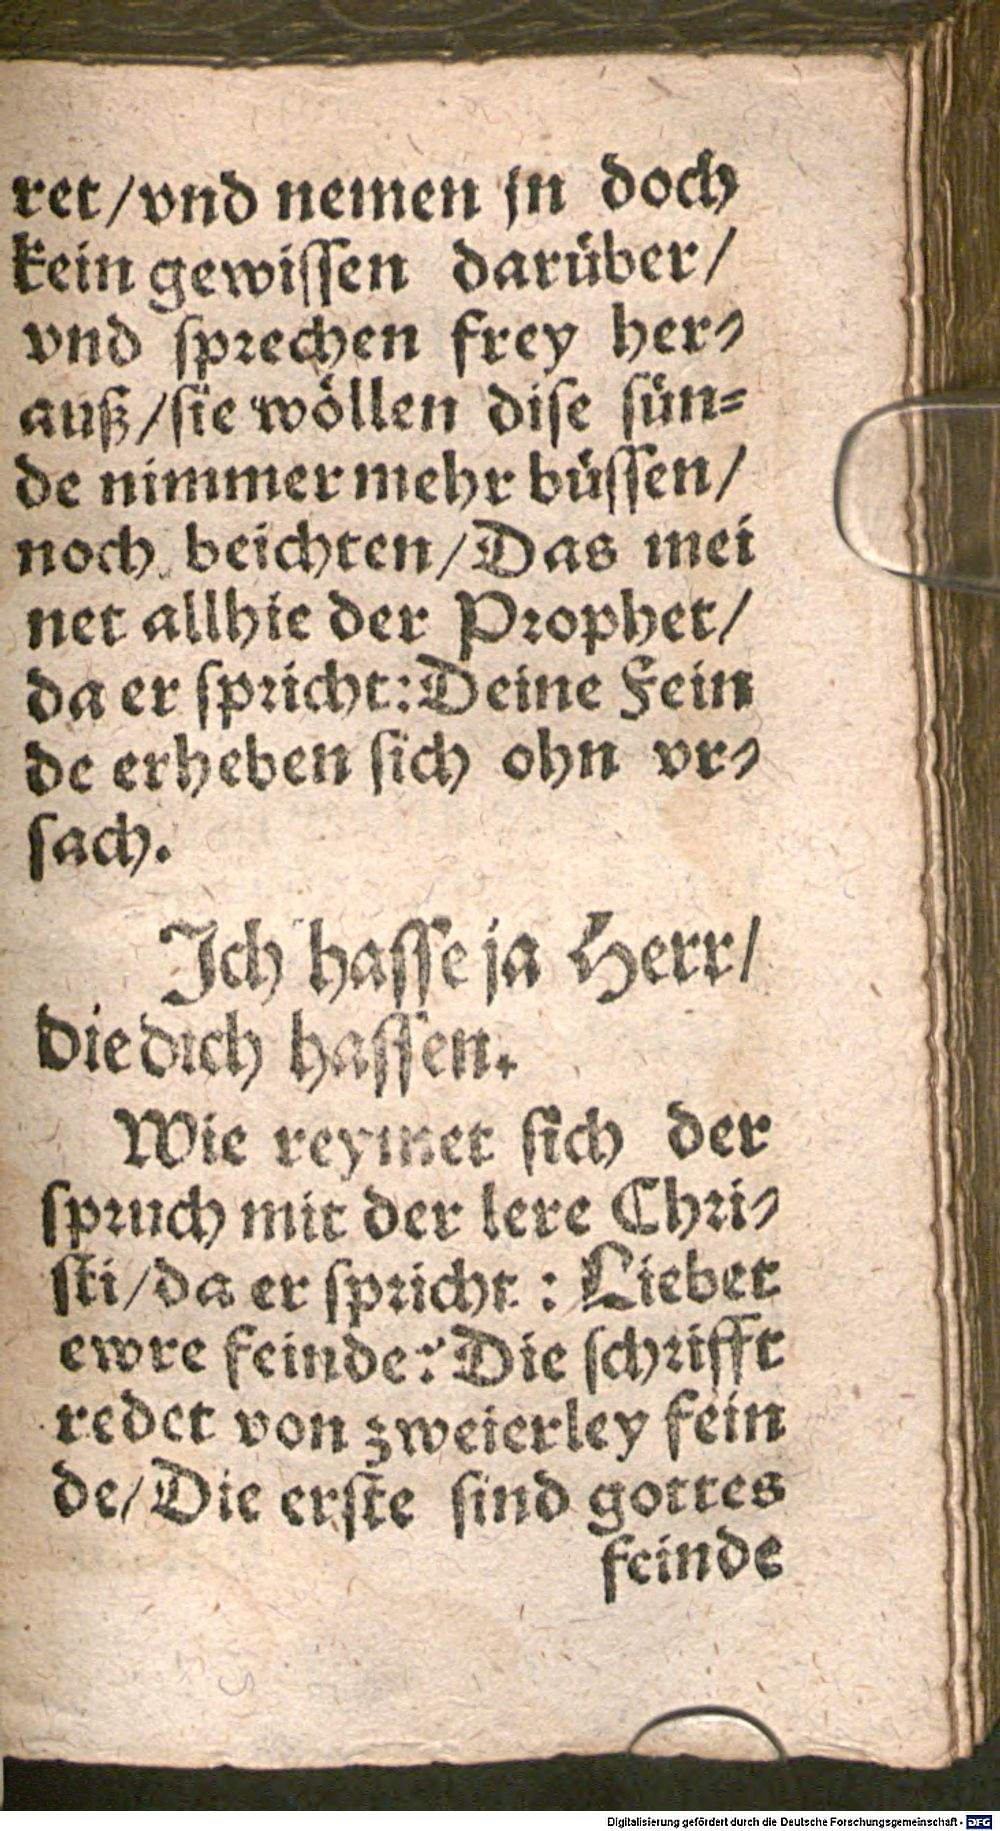 ret/vnd nemen jn doch
kein gewissen darüber/
vnd sprechen frey her-
auß/sie wöllen dise sün=
de nimmer mehr büssen/
noch beichten/Das mei
net allhie der Prophet/
da er spricht:Deine Fein
de erheben sich ohn vr-
sach.
Ich hasse ja Herr/
die dich hassen.
Wie reymet sich der
spruch mit der lere Chri-
sti/da er spricht : Liebet
ewre feinde? Die schrifft
redet von zweierley fein
de/Die erste sind gottes
feinde
Digitalisierung gefördert durch die Deutsche Forschungsgemeinschaft - DFG